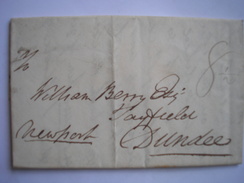 8
William Berry Esq
Tayfield
Newport
Dundee